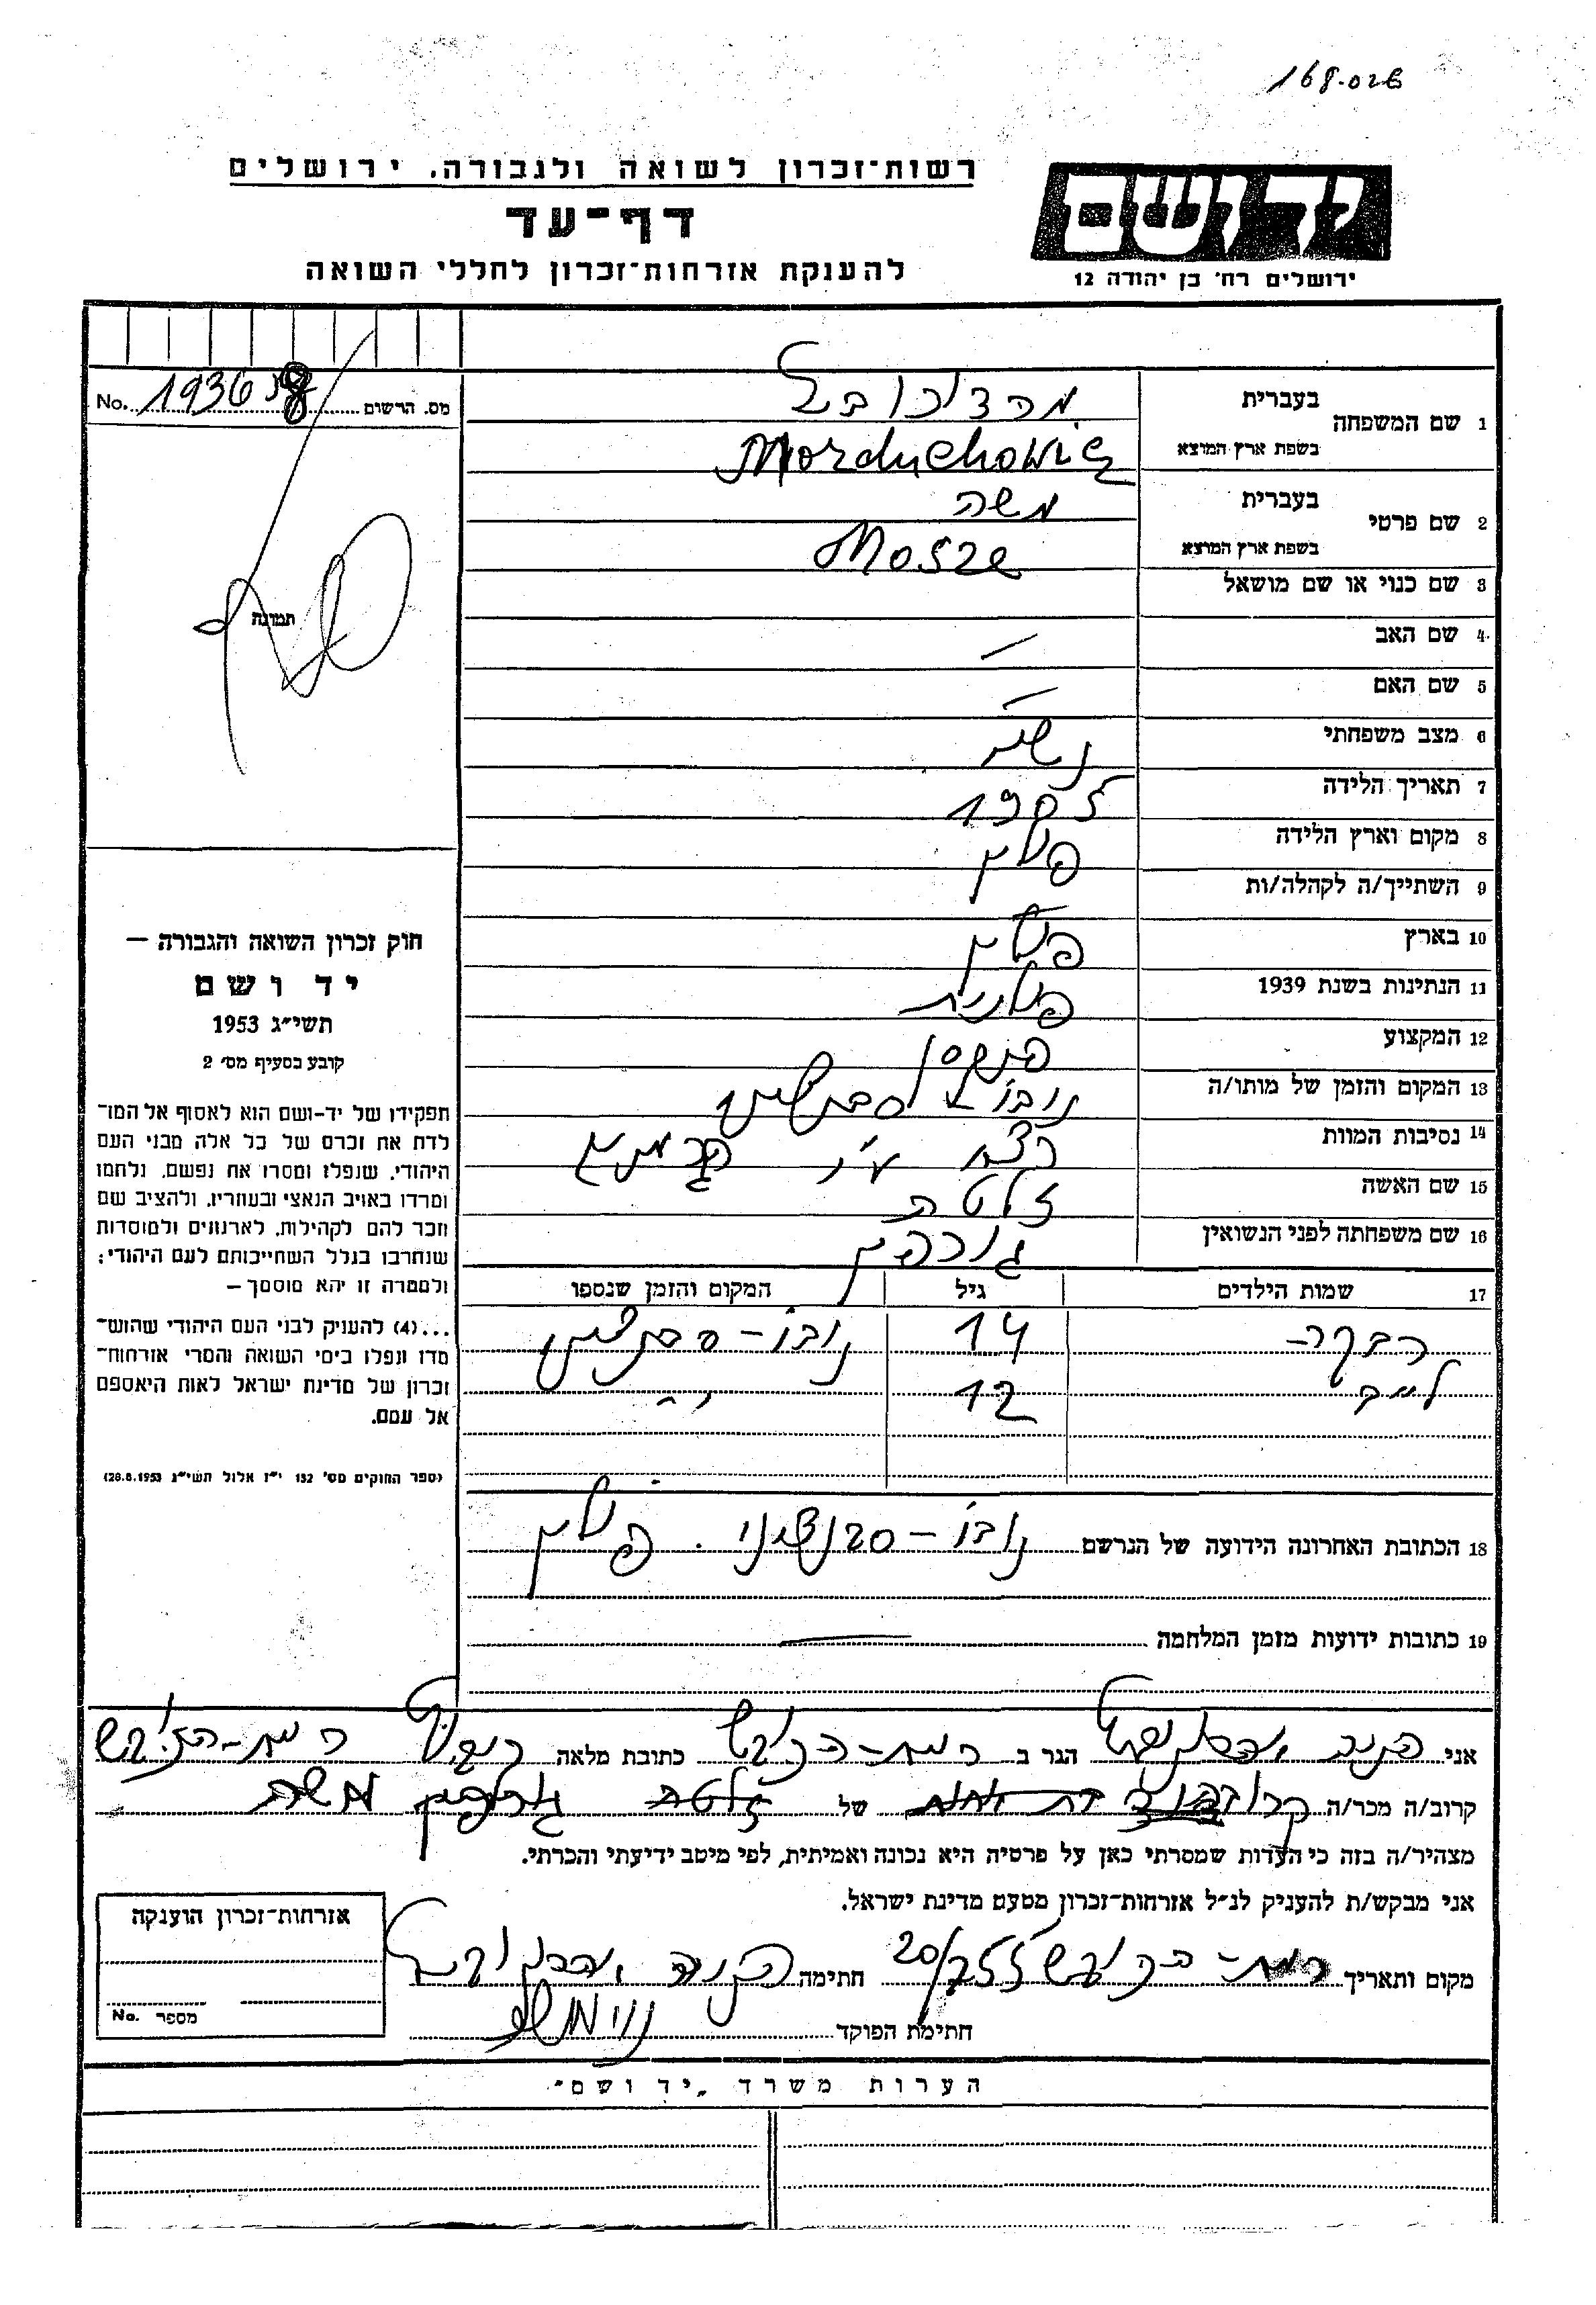 168.02
רשות־זכרון לשואה ולגבורה. ירושלים
דף־עד
להענקת אזרחות־זכרון לחללי השואה
יד ושם
ירושלים רח׳ בן יהודה 12
מס. הרשום No. 19363
1 שם המשפחה בעברית
בשפת ארץ המוצא Morduchowicz
2 שם פרטי בעברית משה
בשפת ארץ המוצא Mosze
3 שם כנוי או שם מושאל
4 שם האב —
5 שם האם —
6 מצב משפחתי נשוי
7 תאריך הלידה 1905
8 מקום וארץ הלידה פולין
9 השתייך/ה לקהלה/ות
10 בארץ פולין
11 הנתינות בשנת 1939 פולנית
12 המקצוע
13 המקום והזמן של מותו/ה נובו
14 נסיבות המוות נרצח ע״י גרמנים
15 שם האשה זלטה
16 שם משפחתה לפני הנשואין
17 שמות הילדים גיל המקום והזמן שנספו
רבקה 14 נובו־
לייב 12 ״
18 הכתובת האחרונה הידועה של הנרשם נובו־סבנציני. פולין
19 כתובות ידועות מזמן המלחמה —
תמונה
חוק זכרון השואה והגבורה —
יד ושם
תשי״ג 1953
קובע בסעיף מס׳ 2
תפקידו של יד-ושם הוא לאסוף אל המו־
לדת את זכרם של כל אלה מבני העם
היהודי, שנפלו ומסרו את נפשם, נלחמו
ומרדו באויב הנאצי ובעוזריו, ולהציב שם
וזכר להם לקהילות, לארגונים ולמוסדות
שנחרבו בגלל השתייכותם לעם היהודי;
ולמטרה זו יהא מוסמך —
...(4) להעניק לבני העם היהודי שהוש־
מדו ונפלו בימי השואה והמרי אזרחות־
זכרון של מדינת ישראל לאות היאספם
אל עמם.
(ספר החוקים מס׳ 132 י״ז אלול תשי״ג 28.8.1953)
אני הגר ב רמת-הכובש כתובת מלאה קיבוץ רמת-הכובש
קרוב/ה מכר/ה של זלטה משה
מצהיר/ה בזה כי העדות שמסרתי כאן על פרטיה היא נכונה ואמיתית, לפי מיטב ידיעתי והכרתי.
אני מבקש/ת להעניק לנ״ל אזרחות־זכרון מטעם מדינת ישראל.
מקום ותאריך רמת-הכובש חתימה
חתימת הפוקד
אזרחות־זכרון הוענקה
מספר No.
הערות משרד „יד ושם״